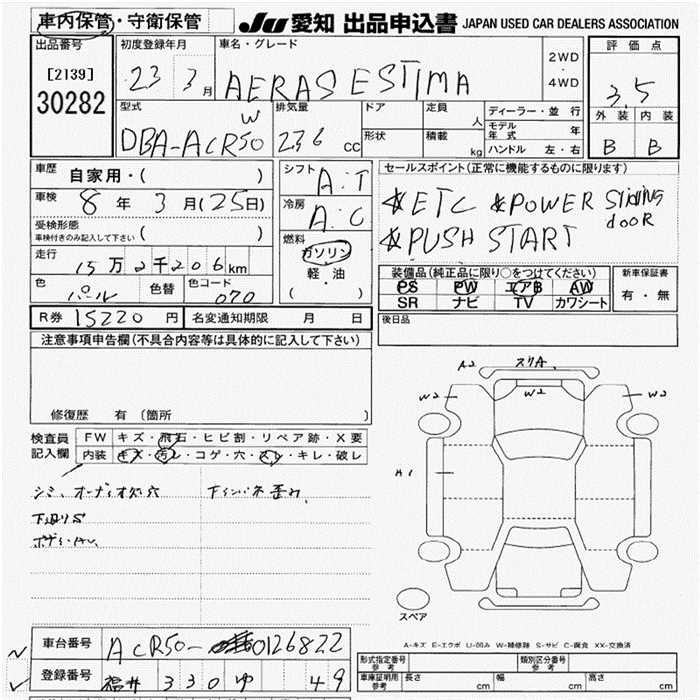 車内保管・守衛保管 JU 愛知 出品申込書 JAPAN USED CAR DEALERS ASSOCIATION
出品番号 初度登録年月 車名・グレード 2WD・4WD 評価点
[2139]
30282 23 3月 AERAS ESTIMA 3.5
型式 排気量 ドア 定員 人 ディーラー・並行 外装 内装
DBA-ACR50W 236cc 形状 積載 kg モデル年式 年 B B
ハンドル 左・右
車歴 自家用・( ) シフト A:T セールスポイント(正常に機能するものに限ります)
車検 8年3月(25日) 冷房 A:C ☆ETC ☆POWER SLIDING DOOR
受検形態 ( )
車検付きのみ記入して下さい
☆PUSH START
走行 15万2千206km 燃料 ガソリン 軽・油 ( )
色 パール 色替 色コード 070
装備品(純正品に限り○をつけてください) 新車保証書
PS PW エアB AW 有・無
SR ナビ TV カワシート
R券 15220円 名変通知期限 月 日 後日品
注意事項申告欄(不具合内容等は具体的に記入して下さい)
修復歴 有 (箇所 )
A2 スリA
W2 W2 W2
A1
検査員記入欄 FW キズ・飛石・ヒビ割・リペア跡・X要
内装 キズ・汚レ・コゲ・穴・スレ・キレ・破レ
シミ、オーディオ欠穴
スペア
A-キズ E-エクボ U-凹み W-補修跡 S-サビ C-腐食 XX-交換済
車台番号 ACR50-0126822
登録番号 福井 330 ゆ 49
形式指定番号 参考 類別区分番号 参考
車庫証明用 参考 長さ cm 幅 cm 高さ cm